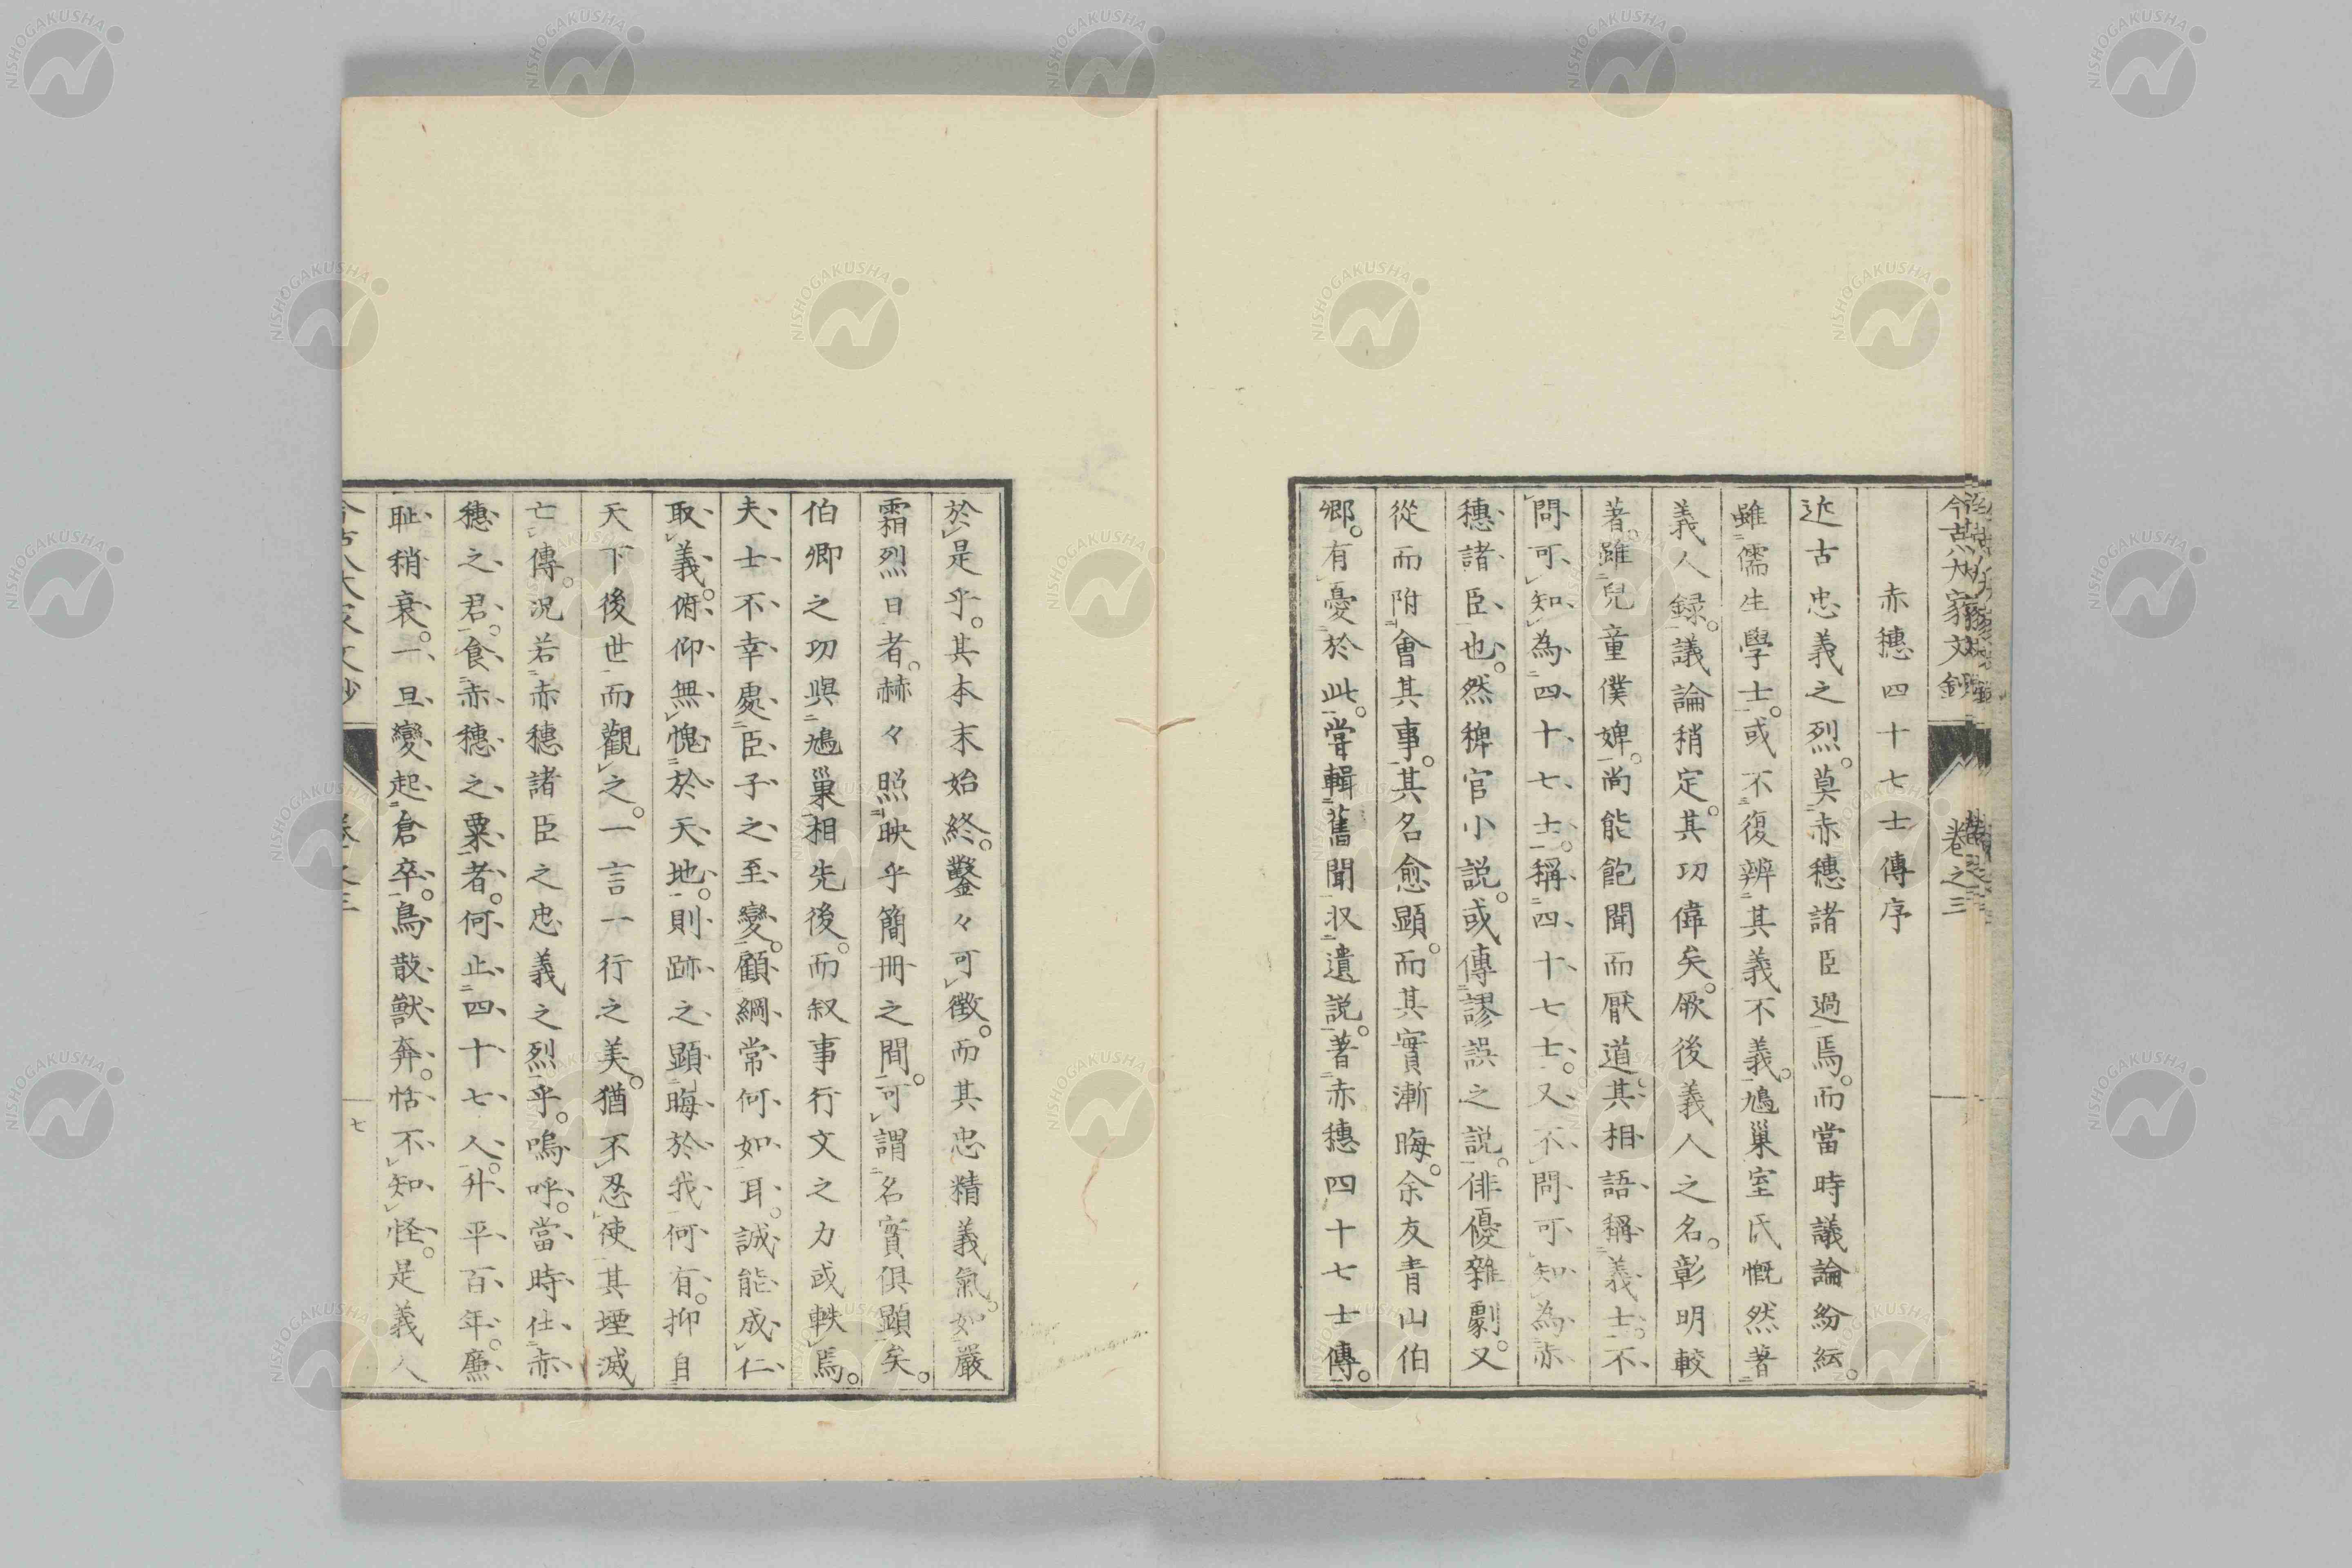 今古八大家文鈔
卷之三
赤穗四十七士傳序
近古忠義之烈。莫赤穗諸臣過焉。而當時議論紛紜。
雖儒生學士。或不復辨其義不義。鳩巢室氏慨然著
義人録。議論稍定。其功偉矣。厥後義人之名。彰明較
著。雖兒童僕婢。尚能飽聞而厭道其相語稱義士。不
問可知為四十七士。稱四十七士。又不問可知為赤
穗諸臣也。然稗官小説。或傳謬誤之説。俳優雜劇。又
從而附會其事。其名愈顯。而其實漸晦。余友青山伯
卿。有憂於此。嘗輯舊聞収遺説。著赤穗四十七士傳。
於是乎。其本末始終。鑿々可徴。而其忠精義氣。如嚴
霜烈日者。赫々照映乎簡冊之間。可謂名實俱顯矣。
伯卿之功與鳩巢相先後。而叙事行文之力或軼焉。
夫士不幸處臣子之至變。顧綱常何如耳。誠能成仁
取義。俯仰無愧於天地。則跡之顯晦於我何有。抑自
天下後世而觀之。一言一行之美。猶不忍使其堙滅
亡傳。況若赤穗諸臣之忠義之烈乎。嗚呼。當時仕赤
穗之君。食赤穗之粟者。何止四十七人。升平百年。廉
耻稍衰。一旦變起倉卒。鳥散獸奔。恬不知怪。是義人
七
NISHOGAKUSHA